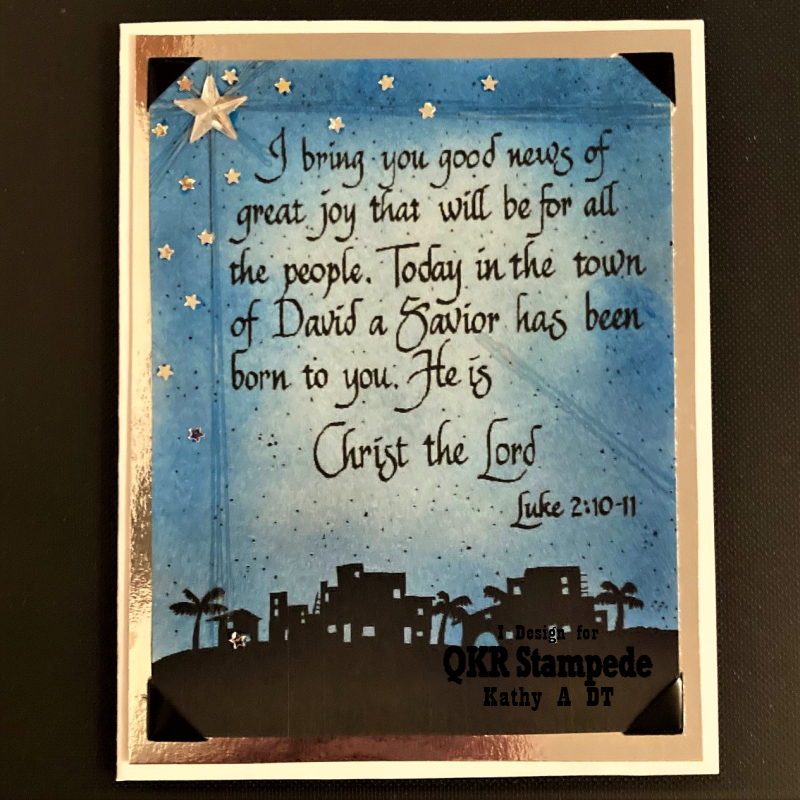 I bring you good news of
great joy that will be for all
the people. Today in the town
of David a Savior has been
born to you. He is
Christ the Lord
Luke 2:10-11
I Design for
QKR Stampede
Kathy A DT